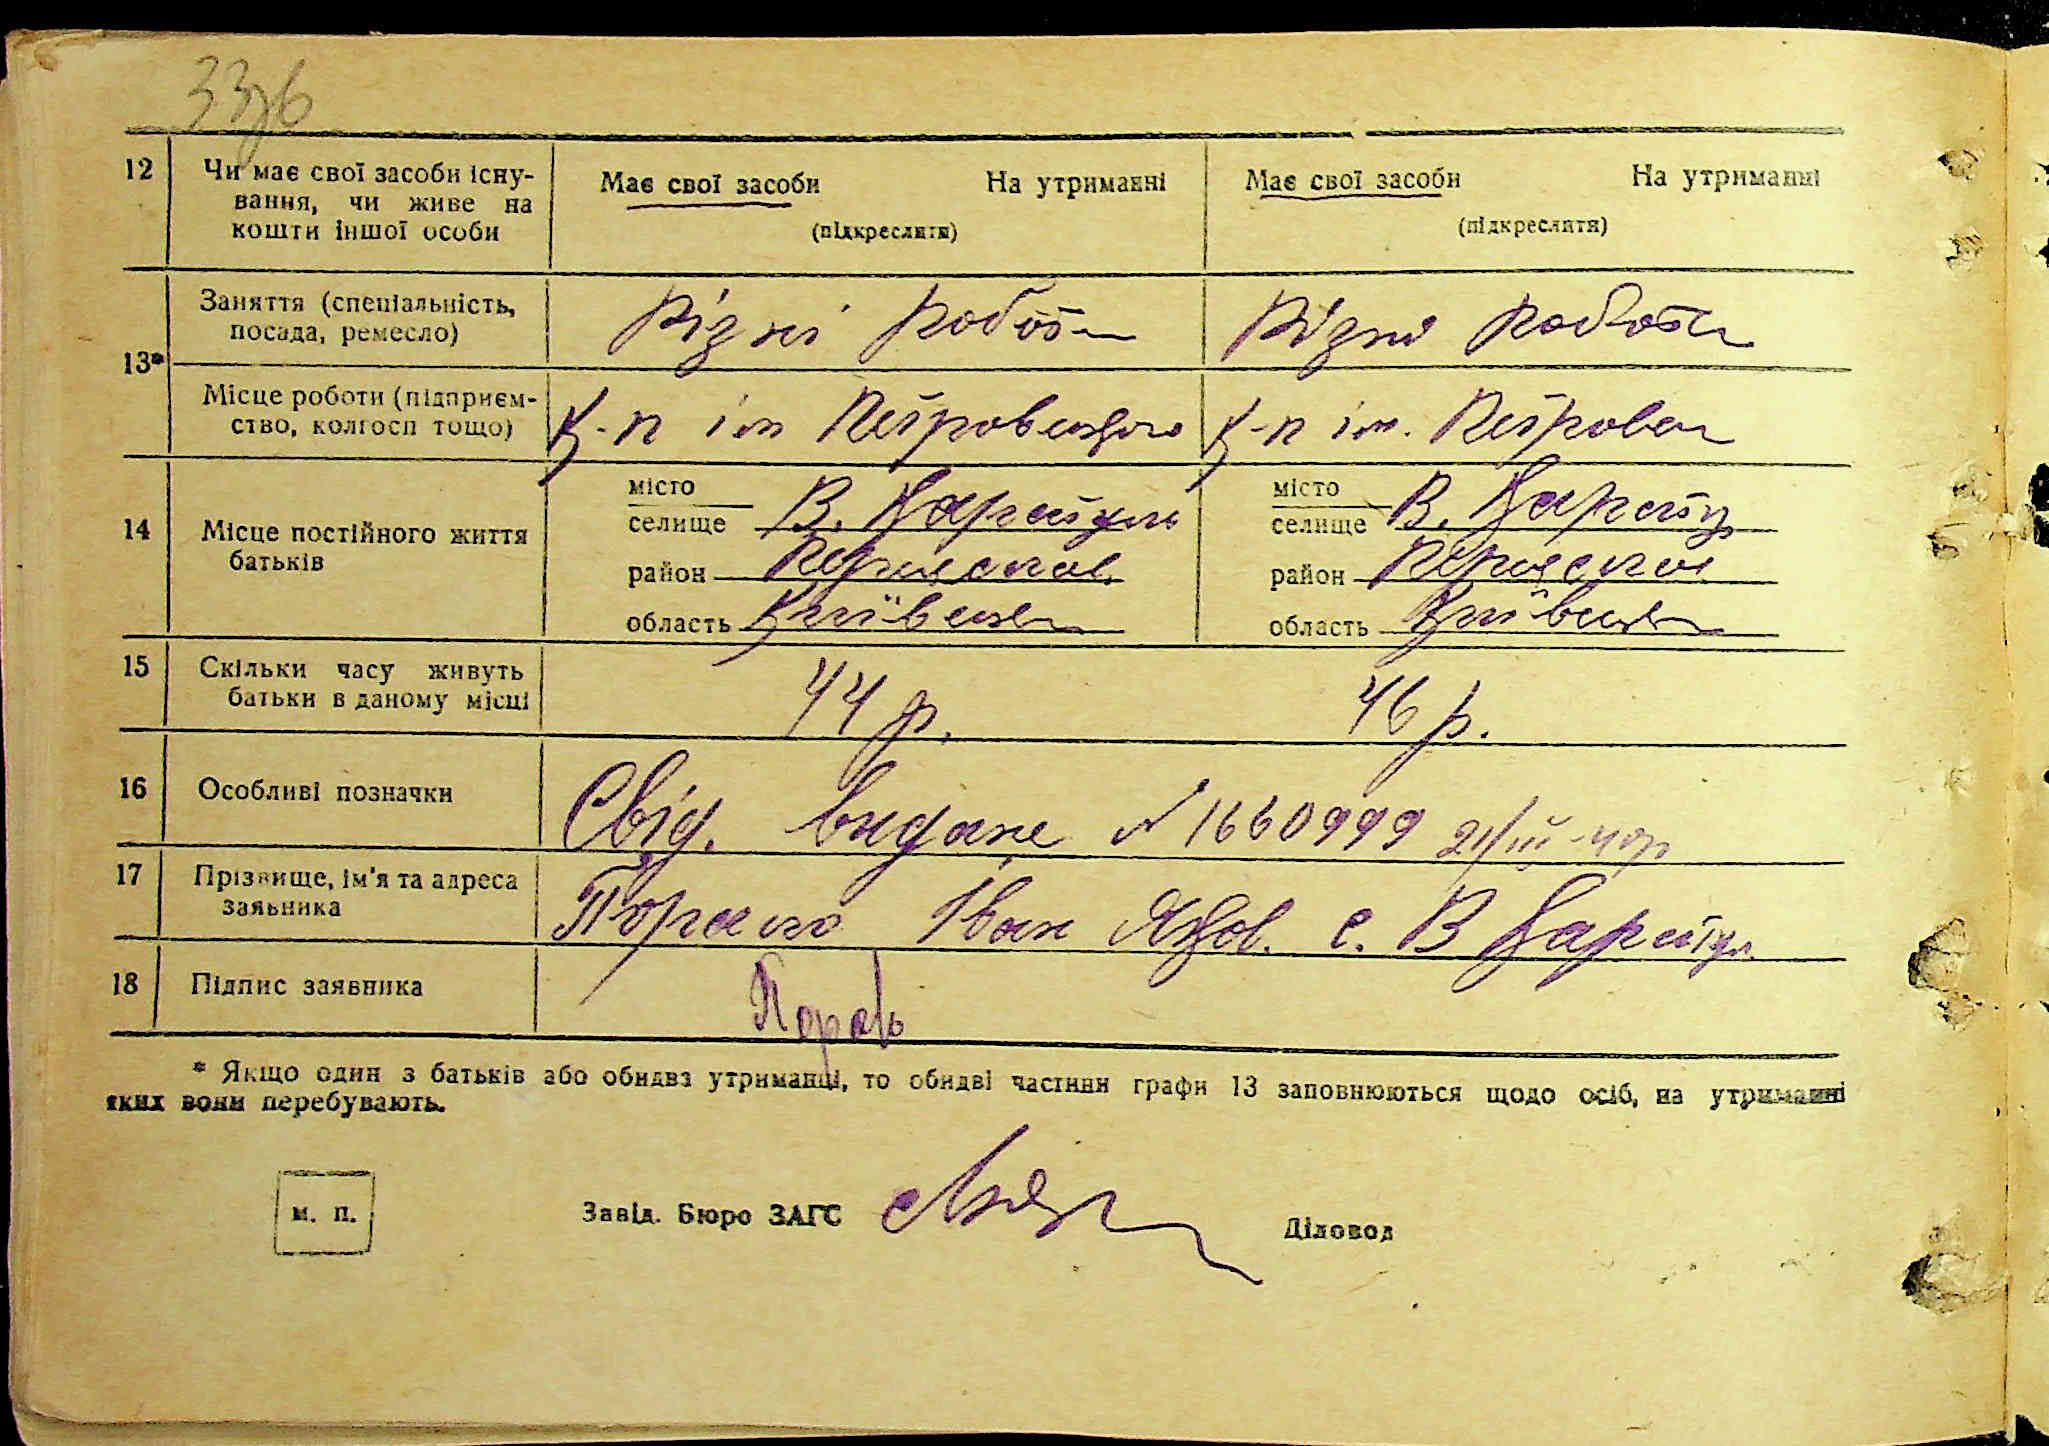 33зв
12 Чи має свої засоби існу- Має свої засоби На утриманні Має свої засоби На утриманні
вання, чи живе на (підкреслити) (підкреслити)
кошти іншої особи
13*
Заняття (спеціальність, Різні роботи Різні роботи
посада, ремесло)
Місце роботи (підприєм- К-п ім Петровського К-п ім. Петровск
ство, колгосп тощо)
14 Місце постійного життя батьків
місто
селище В. Каратуль
район Переяслов.
область Київськ
місто
селище В. Карату
район Переяслов
область Київськ
15 Скільки часу живуть 44 р. 46 р.
батьки в даному місці
16 Особливі позначки Свід. видане № 1660999 21/III-40р
17 Прізвище, ім'я та адреса Іван Яков. с. В Каратул
заявника
18 Підпис заявника
* Якщо один з батьків або обидва утриманці, то обидві частини графи 13 заповнюються щодо осіб, на утриманні
яких вони перебувають.
м. п. Завід. Бюро ЗАГС Діловод